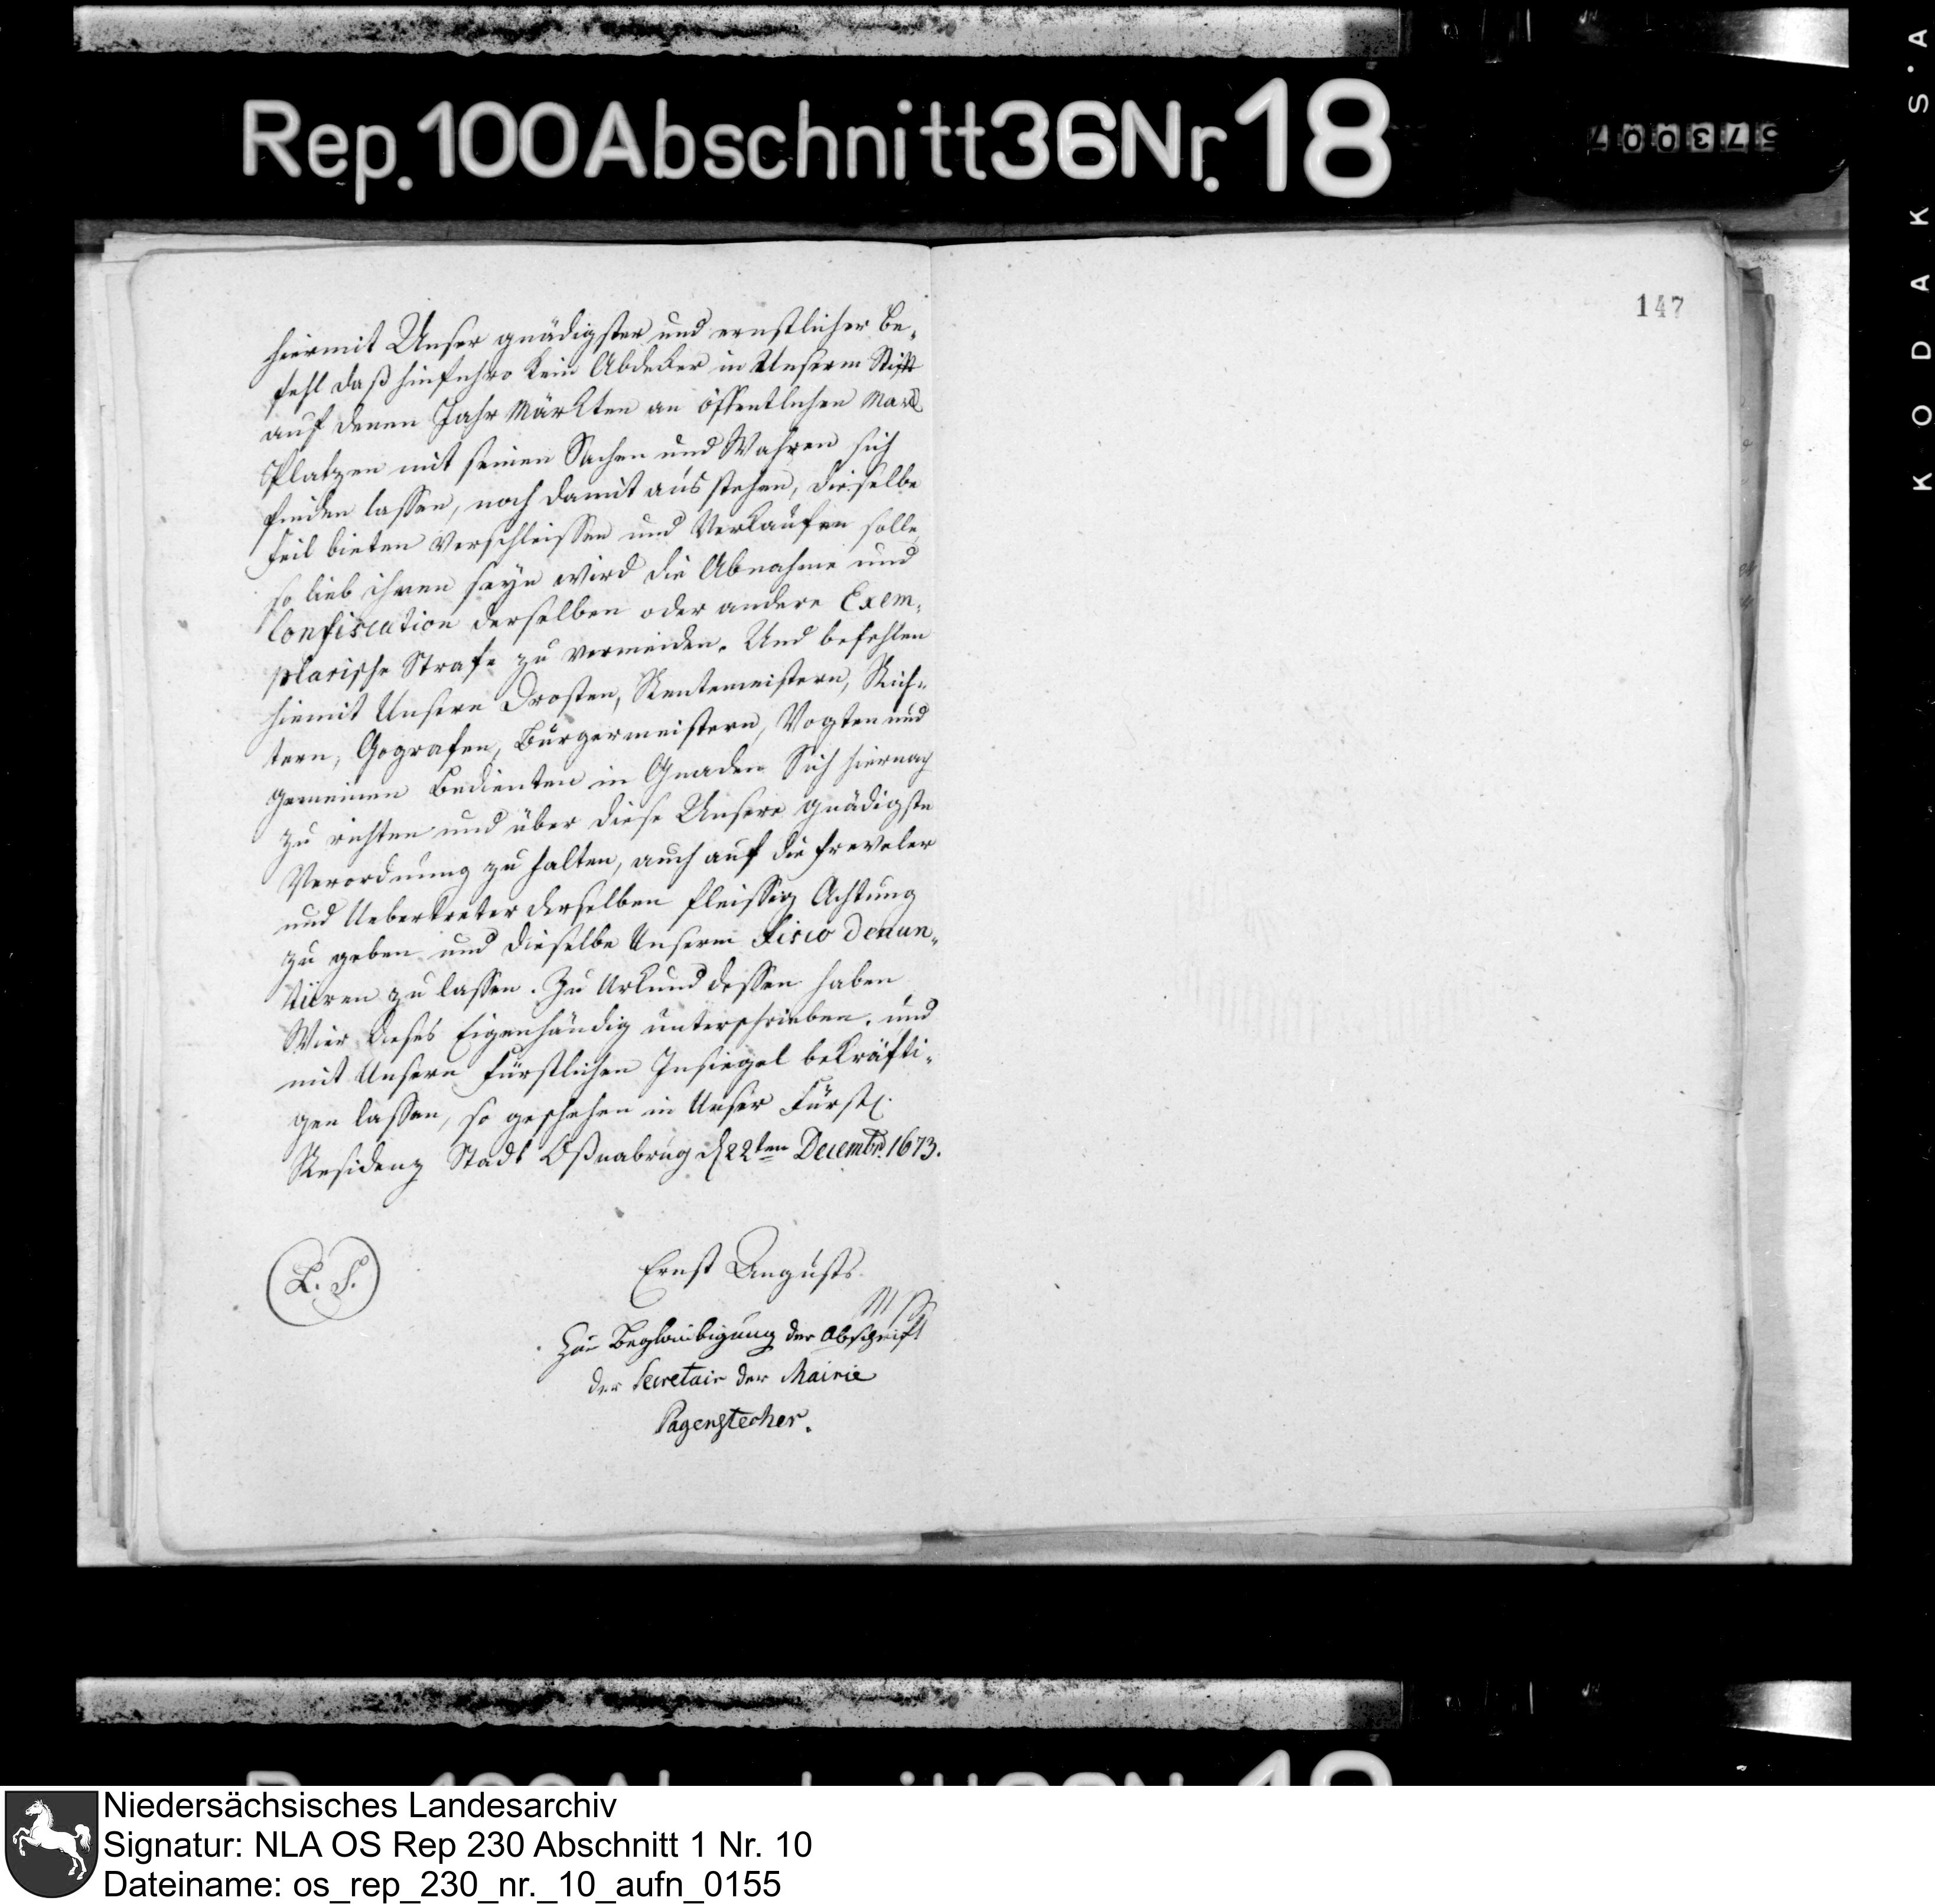 Rep. 100 Abschnitt 36 Nr. 18
KODAK S.A
147
hiermit Unser gnädigster und ernstlicher Be-
fehl daß hinfuhro kein Abdeker in Unserm Stifft
auf denen Jahr Märkten an öffentlichen Markt
Platzen mit seinen Sachen und Wahren sich
finden lassen, noch damit ausstehen, dieselbe
feil bieten verschleissen und Verkaufen solle,
so lieb ihnen seyn wird die Abnahme und
Confiscation derselben oder andere Exem-
plarische Strafe zu vermeiden. Und befehlen
hiemit Unsern Drosten, Rentemeistern, Rich-
tern, Gografen, Bürgermeistern, Vogten und
gemeinen Bedienten in Gnaden Sich hiernach
zu richten und über diese Unsere gnädigste
Verordnung zu halten, auch auf die freveler
und Uebertreter derselben fleissig Achtung
zu geben und dieselbe Unserm Fisco denun-
tiiren zu lassen. Zu Urkund dessen haben
Wier dieses Eigenhändig unterschrieben, und
mit Unsern Fürstlichen Insiegel bekräfti-
gen lassen, so geschehen in Unser Fürstl.
Residenz Stadt Oßnabrüg d 22ten Decembr. 1673.
L. S.
Ernst Augusts
Zur Beglaubigung der Abschrift
der Secretair der Mairie
Pagenstecher.
Niedersächsisches Landesarchiv
Signatur: NLA OS Rep 230 Abschnitt 1 Nr. 10
Dateiname: os_rep_230_nr._10_aufn_0155